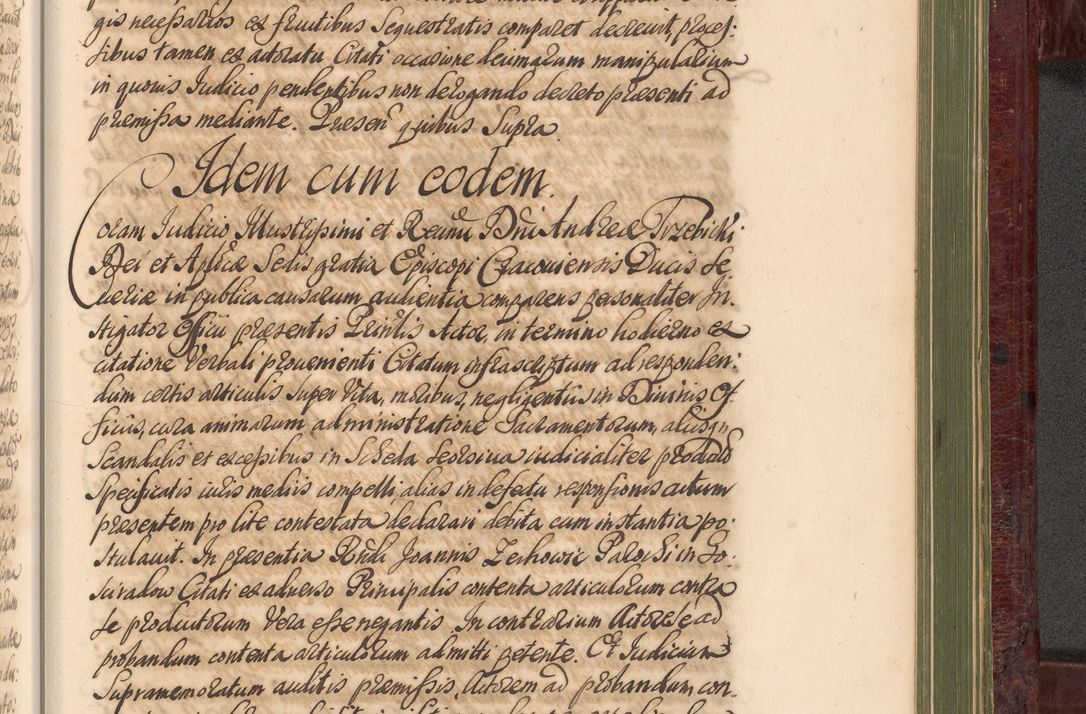 gis necessarios ex fructibus Sequestratis comparet decrevit, proces:
sibus tamen ex adoratu Citati occasione decimarum manipularium
in quovis Iudicio pendentibus non derogando decreto presenti ad
premissa mediante. Presen͠ quibus Supra
Idem cum eodem.
Coram Iudicio Illustrissimi et Reuñi Dñi Andreæ Trzebicki
Dei et Aplicæ Sedis gratia Episcopi Cracouiensis Ducis Se,
veriæ in publica causarum audientia comparens personaliter In,
stigator Officii presentis Prinlis Actor, in termino hodierno ex
citatione Verbali provenienti Citatum infrascriptum ad responden:
dum certis articulis super Vita, moribus, negligentiis in Divinis Of
ficiis, cura animarum administratione Sacramentorum, aliisq,
Scandalis et excessibus in Scheda seorsiva iudicialiter
Specificatis iuris mediis compelli alias in defectu responsionis
presentem pro lite contestata declarari debita cum instantia po:
stulavit. In presentia Rndi Joannis Zechowic Parochi in Go:
Citati ex adverso Principalis contenta articulorum contra
se productorum Vera esse negantis. In contrarium Actore se ad
probandum contenta articulorum admitti petente. Et Iudicium
Supramemoratum auditis premissis, Actorem ad probandum con,